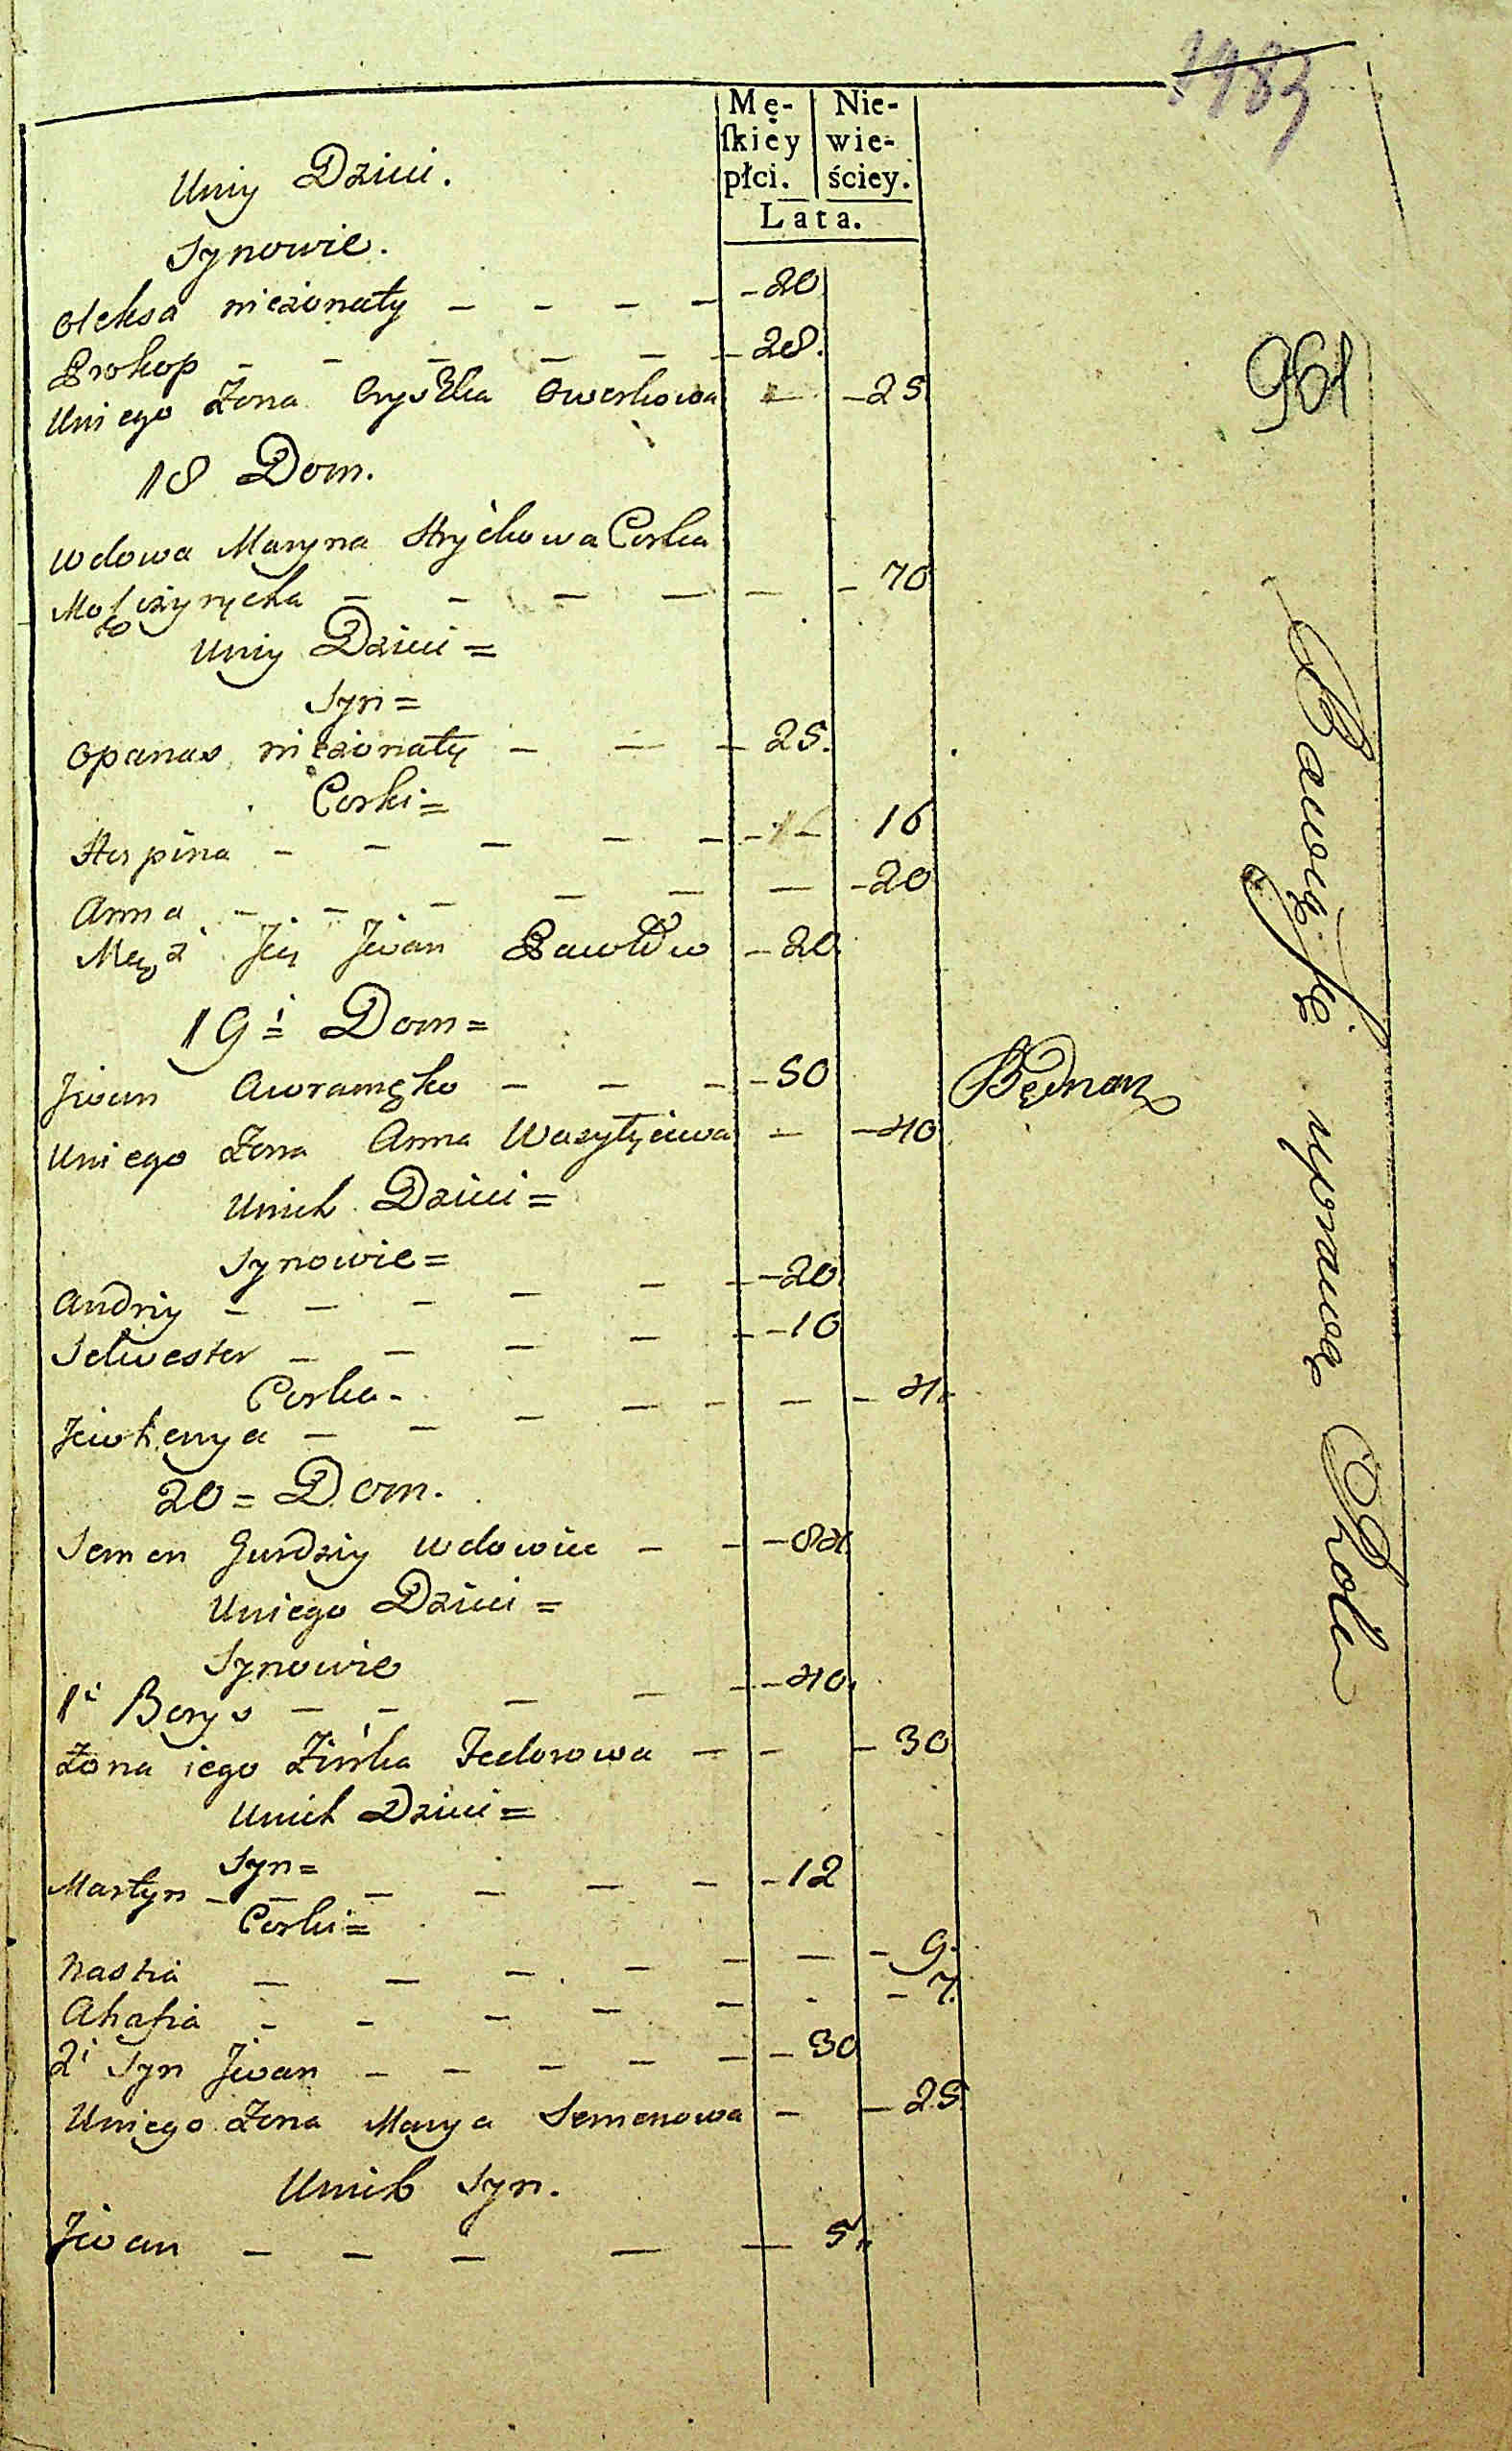 1983
Mę- Nie-
ſkiéy wie-
płci. ściey.
Lata.
961
Uniy Dzieci.
Synowie.
Oleksa nieżonaty - - - - - 20
Prokop - - - - - - 28.
Uniego Żona Owerkowa - - 25
18 Dom.
Wdowa Maryna Hryćkowa Corka
- - - - - - 70
Uniy Dzieci =
Syn =
Opanas nieżonaty - - - 25.
Corki =
Horpina - - - - - - - 16
Anna - - - - - - - 20
Mąż Jey Jwan Pawłów - 20
19i Dom =
Jwan Awramęko - - - - 50 Bednarz
Uniego Żona Anna Wasylyiowa - - 40
Unich Dzieci =
Synowie =
Andriy - - - - - - - 20
Selwester - - - - - - 10
Corka -
Jewhenya - - - - - - - 4.
20 = Dom.
Semen Gurdziy wdowiec - - - 84
Uniego Dzieci =
Synowie
1i Borys - - - - - - 40.
Żona iego Zińka Fedorowa - - - 30
Unich Dzieci =
Syn =
Martyn - - - - - - - 12
Corki =
Nastia - - - - - - - 9.
Ahafia - - - - - - 7.
2i Syn Jwan - - - - - - 30
Uniego Żona Marya Semenowa - - 25
Unich Syn.
Jwan - - - - - 5.
Bawią się uprawą Roli